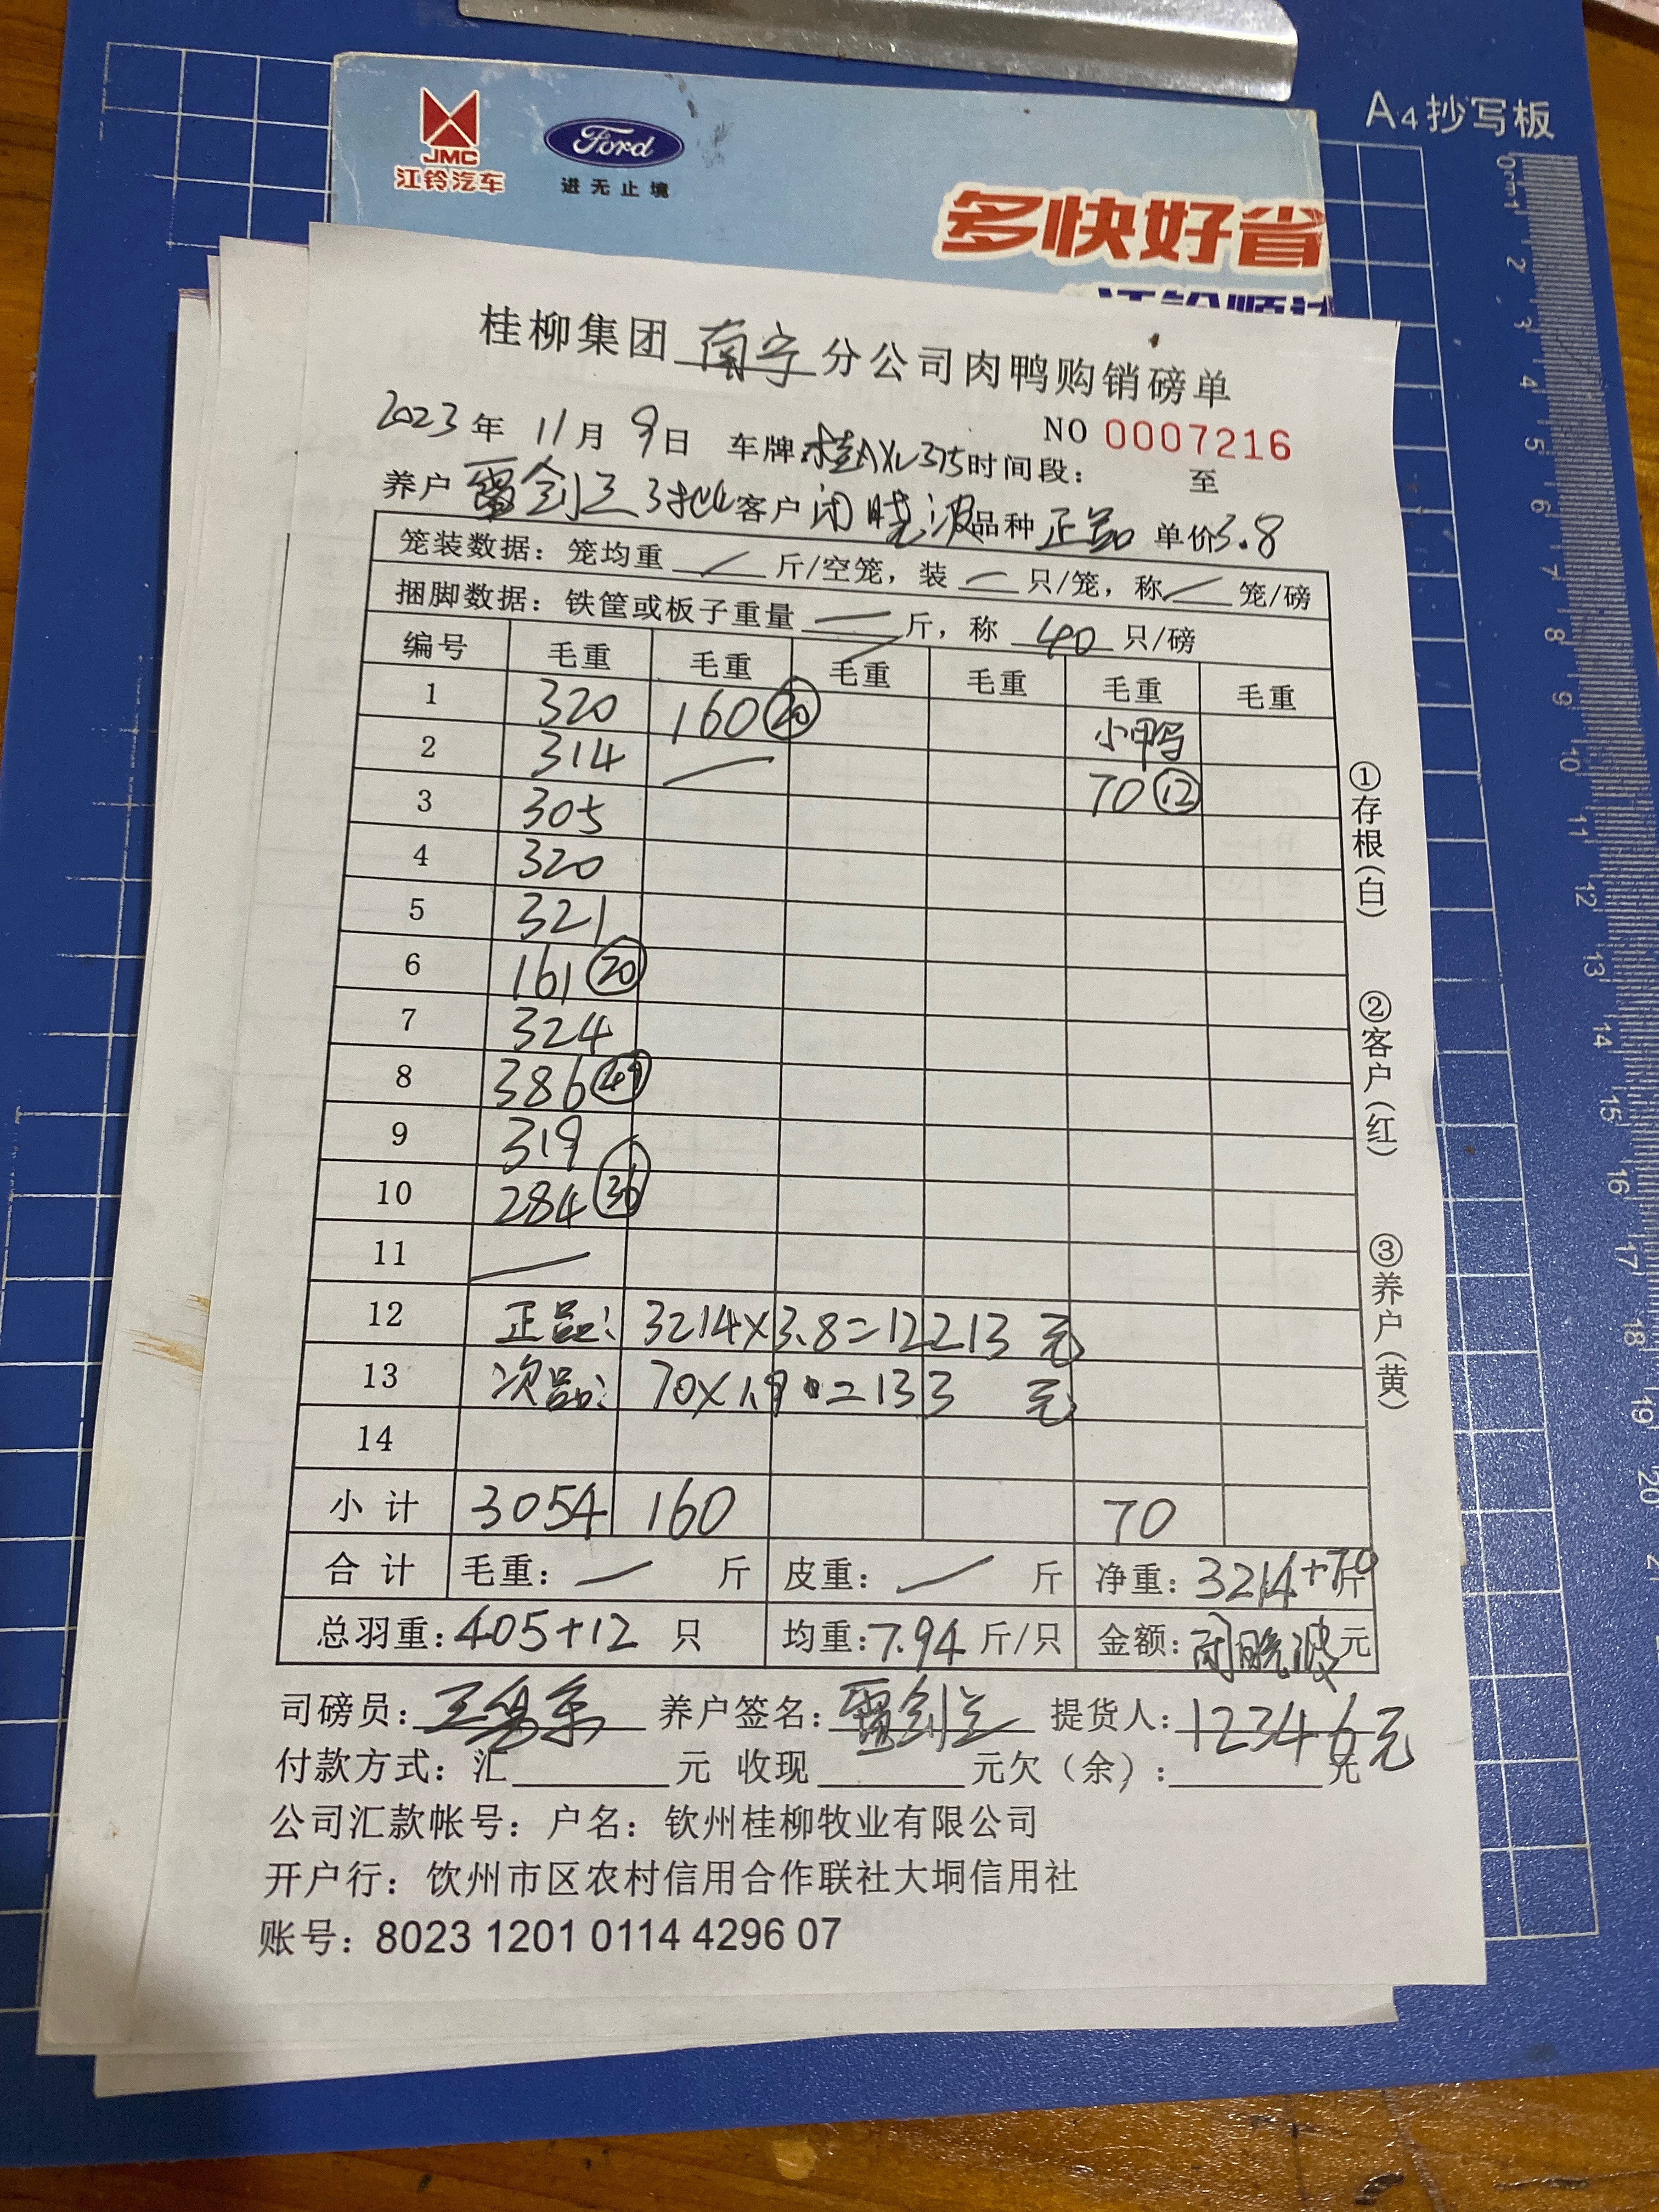 A4抄写板
JMC
江铃汽车
Ford
进无止境
多快好省
桂柳集团 南宁 分公司肉鸭购销磅单
NO 0007216
2023年 11月 9日 车牌桂AXL375时间段： 至
养户 雷剑兰3批 客户 闭晓波 品种 正品 单价3.8
笼装数据：笼均重 — 斤/空笼，装 — 只/笼，称 — 笼/磅
捆脚数据：铁筐或板子重量 — 斤，称 40 只/磅
编号 毛重 毛重 毛重 毛重 毛重 毛重
1 320 160 ⑳ 小鸭
2 314 — 70 ⑫
3 305
4 320
5 321
6 161 ⑳
7 324
8 386 ㊾
9 319
10 284 ㊱
11 —
12 正品: 3214×3.8=12213 元
13 次品: 70×1.9=133 元
14
小计 3054 160 70
合计 毛重： — 斤 皮重： — 斤 净重：3214+70斤
总羽重:405+12 只 均重:7.94 斤/只 金额:闭晓波元
司磅员: 养户签名:雷剑兰 提货人:12346元
付款方式：汇 元 收现 元欠（余）: 元
公司汇款帐号：户名：钦州桂柳牧业有限公司
开户行：饮州市区农村信用合作联社大垌信用社
账号：8023 1201 0114 4296 07
①存根（白）
②客户（红）
③养户（黄）
0cm1
2
3
4
5
6
7
8
9
10
11
12
13
14
15
16
17
18
19
20